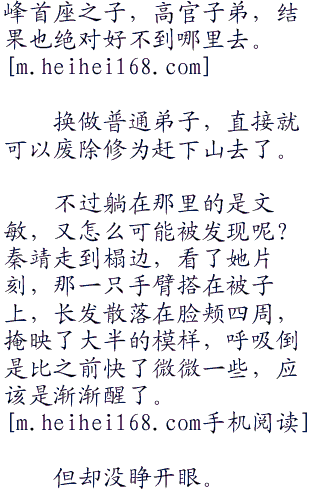 峰首座之子，高官子弟，结
果也绝对好不到哪里去。
[m.heihei168.com]
换做普通弟子，直接就
可以废除修为赶下山去了。
不过躺在那里的是文
敏，又怎么可能被发现呢？
秦靖走到榻边，看了她片
刻，那一只手臂搭在被子
上，长发散落在脸颊四周，
掩映了大半的模样，呼吸倒
是比之前快了微微一些，应
该是渐渐醒了。
[m.heihei168.com手机阅读]
但却没睁开眼。